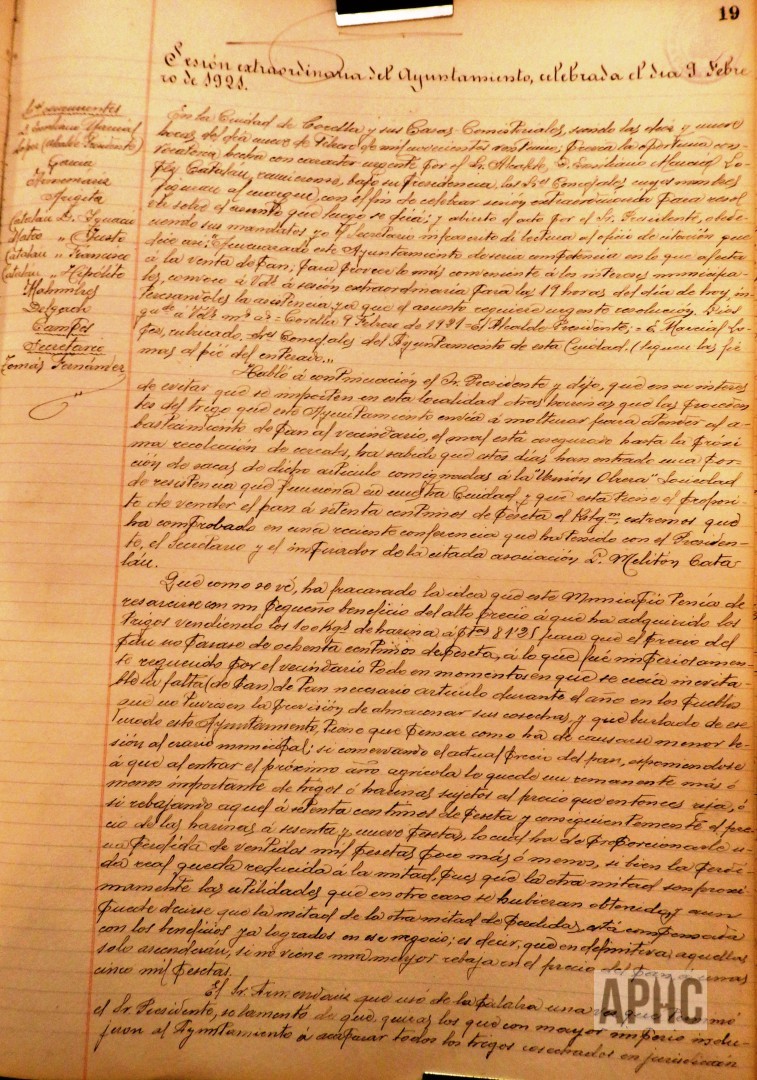 19
Sesión extraordinaria del Ayuntamiento, celebrada el dia 9 Febre-
ro de 1921.
Sres concurrentes
D. Emiliano Marcial
López (Alcalde Presidente)
García
Armendáriz
Argieta
Catalán D. Ignacio
Mateo " Justo
Catalán " Francisco
Catalán " Hipólito
Delgado
Campos
Secretario
Tomás Fernández
En la Ciudad de Corella y sus Casas Consistoriales, siendo las diez y nueve
horas del dia nueve de Febrero de mil novecientos veintiuno; previa la oportuna con-
vocatoria hecha con caracter urgente por el Sr. Alcalde, D. Emiliano Marcial Ló-
pez Catalán, reunieronse, bajo su Presidencia, los Sres Concejales cuyos nombres
figuran al margen, con el fin de celebrar sesión extraordinaria para resol-
ver sobre el asunto que luego se dirá; y abierto el acto por el Sr. Presidente, obede-
ciendo sus mandatos yo el Secretario infrascrito di lectura al oficio de citación que
dice así: "Encargado este Ayuntamiento de una competencia en lo que afecta
á la venta de pan, para proveer lo más conveniente á los intereses municipa-
les, convoco á Vds á sesión extraordinaria para las 19 horas del dia de hoy, in-
teresandoles la asistencia, ya que el asunto requiere urgente resolución. Dios
gue á Vds ms as = Corella 9 Febrero de 1921 = El Alcalde Presidente, = E. Marcial Ló-
pez, rubricado. Sres Concejales del Ayuntamiento de esta Ciudad. (Siguen las fir-
mas al pié del enterado.,,
Habló á continuación el Sr. Presidente y dijo, que en su interés
de evitar que se importen en esta localidad otras harinas que las proceden-
tes del trigo que este Ayuntamiento envía á molturar para atender al a-
bastecimiento de pan al vecindario, el cual está asegurado hasta la próxi-
ma recolección de cereales, ha sabido que estos dias han entrado una por-
ción de sacas de dicho artículo consignadas á la "Unión Obrera" Sociedad
de resistencia que funciona en nuestra Ciudad, y que esta tiene el propósi-
to de vender el pan á setenta centimos de peseta el Kilgm, extremos que
ha comprobado en una reciente conferencia que ha tenido con el Presiden-
te, el Secretario y el inspirador de la citada asociación D. Melitón Cata-
lán.
Que como se vé, ha fracasado la idea que este Municipio tenía de
resarcirse con un pequeño beneficio del alto precio á que ha adquirido los
trigos vendiendo los 100 Kgs de harina á Ptas 81'25 para que el precio del
pan no pasase de ochenta centimos de peseta, á lo que fué imperiosamen-
te requerido por el vecindario todo en momentos en que se creía inevita-
ble la falta (de pan) de tan necesario artículo durante el año en los pueblos
que no tuviesen la previsión de almacenar sus cosechas, y que burlado de ese
modo este Ayuntamiento, tiene que pensar como ha de causarse menor le-
sión al erario municipal; si conservando el actual precio del pan, exponiéndose
á que al entrar el próximo año agrícola le quede un remanente más ó
menos importante de trigos ó harinas sujetos al precio que entonces rija, ó
si rebajando aquel á setenta centimos de peseta y consiguientemente el pre-
cio de las harinas á sesenta y nueve pesetas, lo cual ha de proporcionarle u-
na pérdida de ventidos mil pesetas poco más ó menos, si bien la pérdi-
da real queda reducida á la mitad, pues que la otra mitad son proxi-
mamente las utilidades que en otro caso se hubieran obtenido, y aun
puede decirse que la mitad de la otra mitad de perdida, está compensada
con los beneficios ya logrados en ese negocio; es decir, que en definitiva aquellas
solo ascenderán, si no viene una mayor rebaja en el precio del pan, á unas
cinco mil pesetas.
El Sr. Armendáriz que usó de la palabra una vez que terminó
el Sr. Presidente, se lamentó de que, quizas los que con mayor imperio indu-
jeron al Ayuntamiento á acaparar todos los trigos cosechados en jurisdicción
APHC